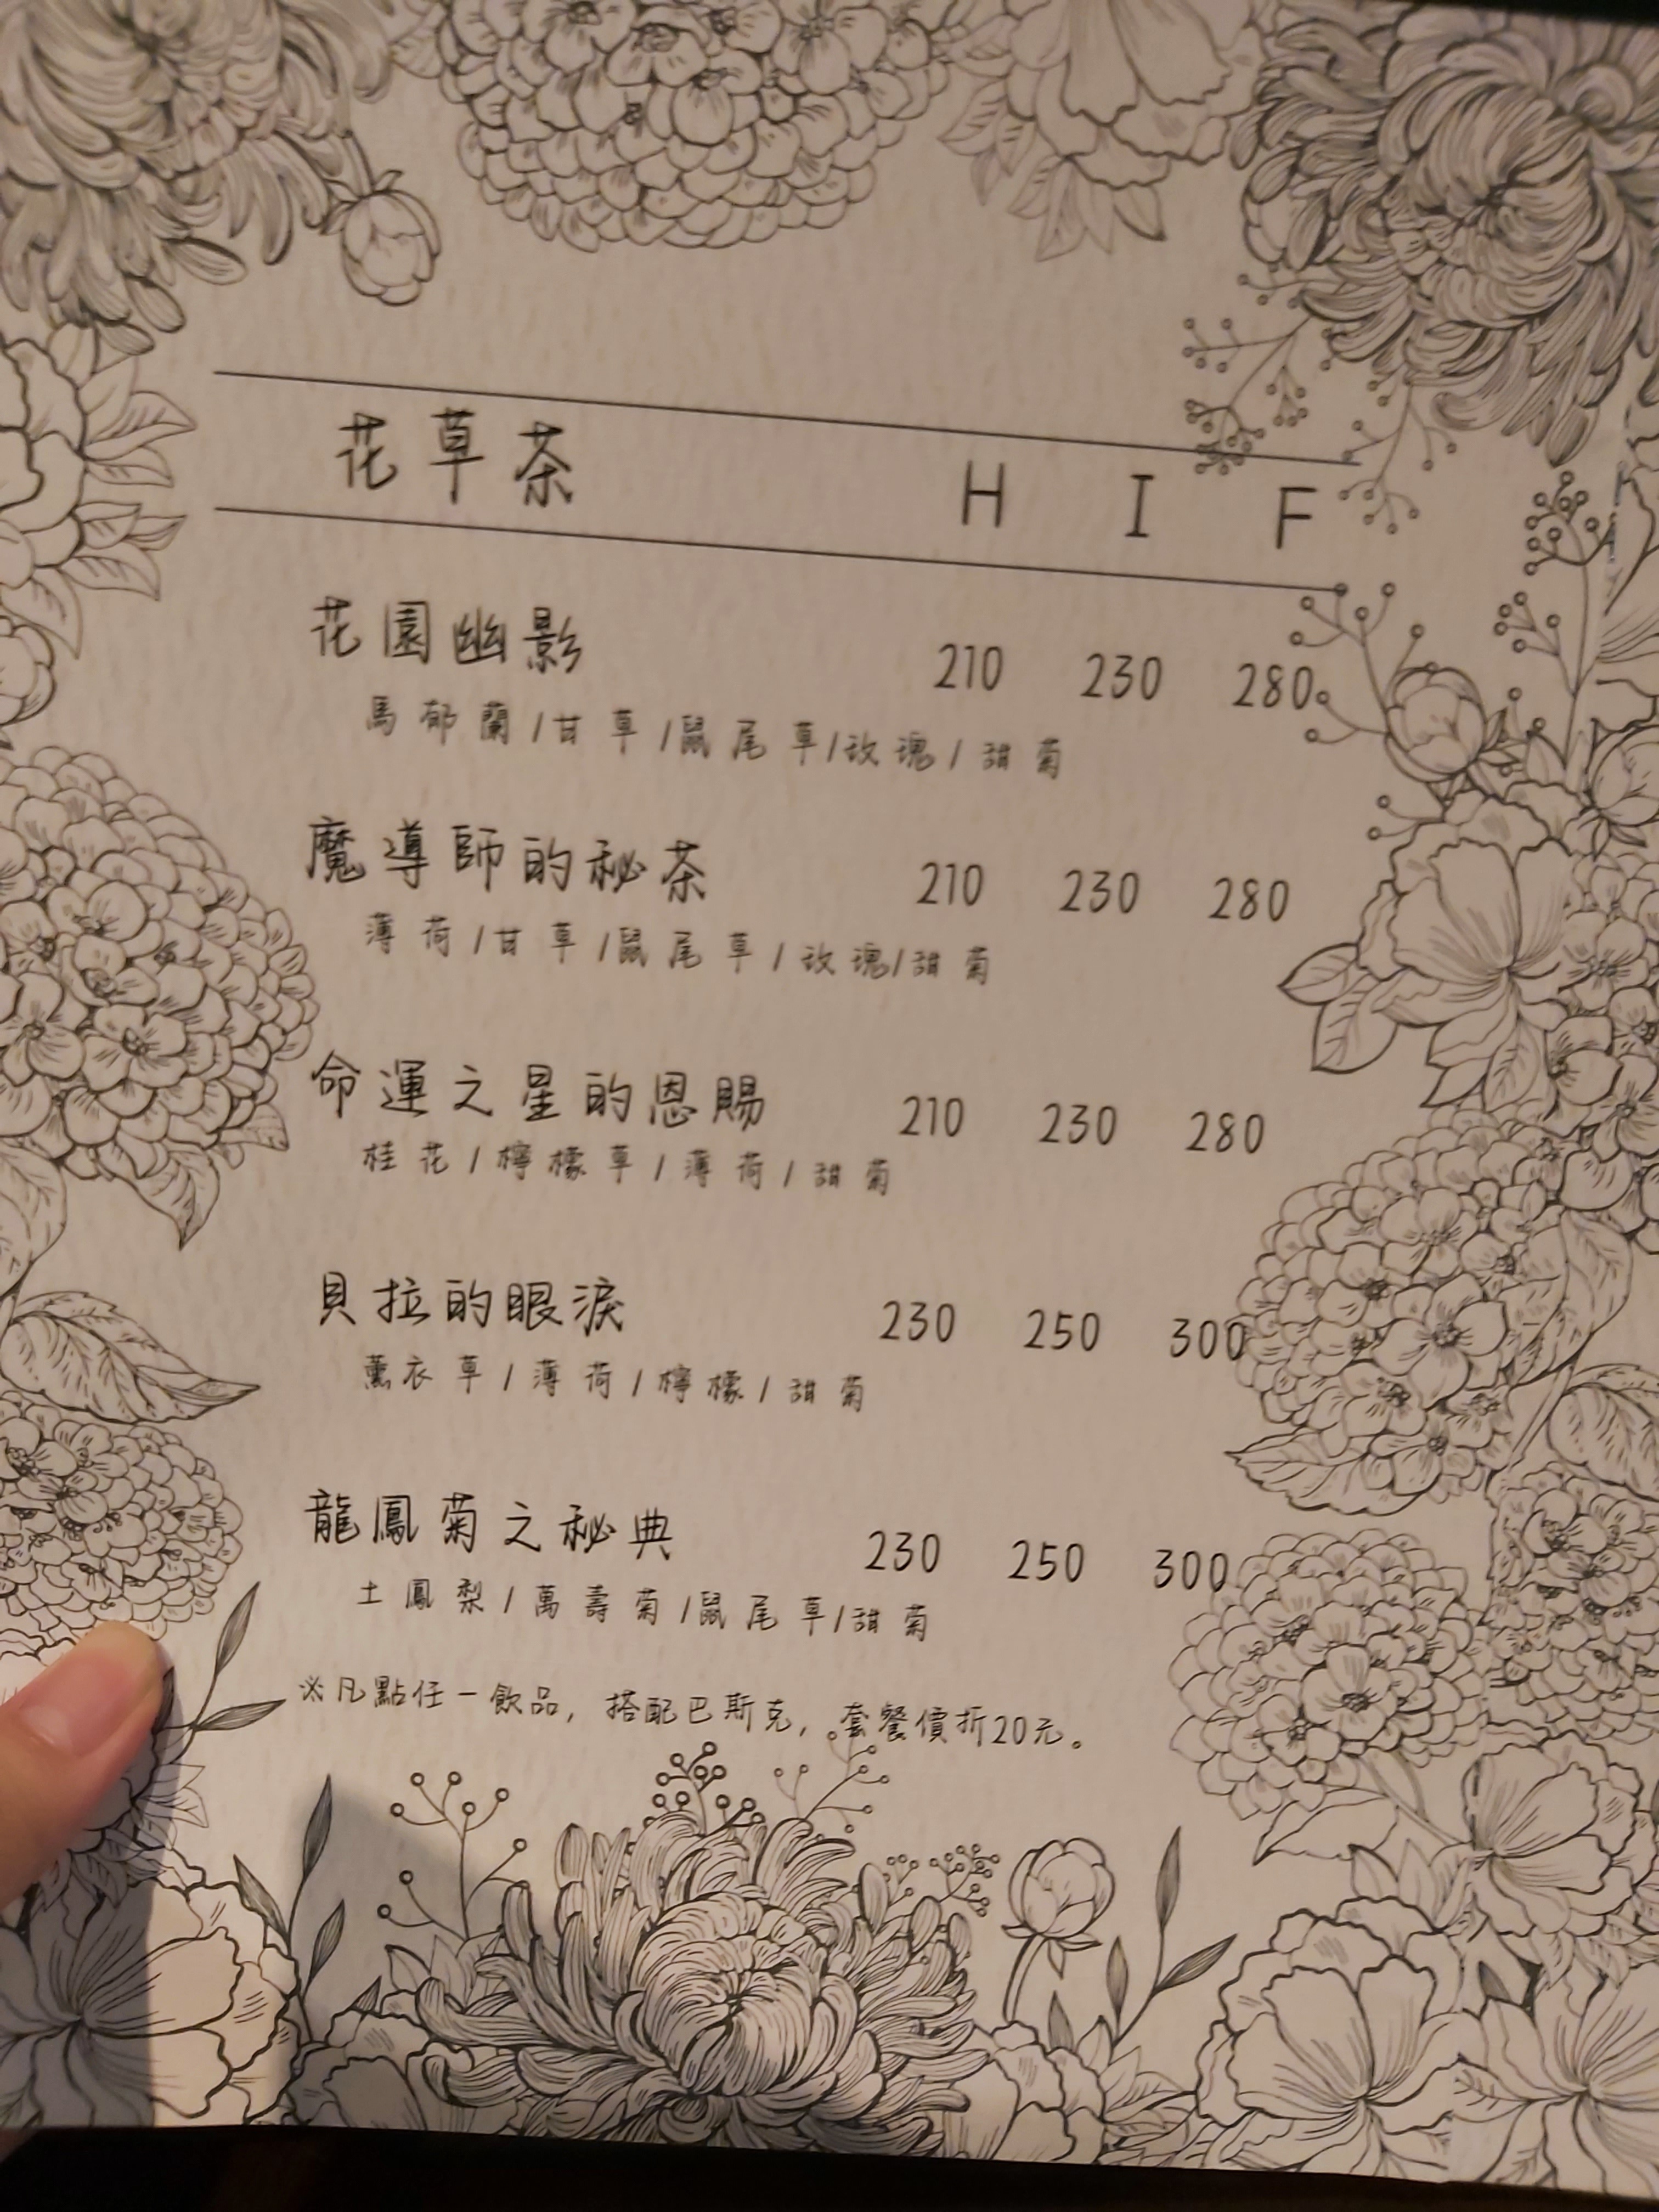 花草茶 H I F
花園幽影 210 230 280
馬郁蘭/甘草/鼠尾草/玫瑰/甜菊
魔導師的秘茶 210 230 280
薄荷/甘草/鼠尾草/玫瑰/甜菊
命運之星的恩賜 210 230 280
桂花/檸檬草/薄荷/甜菊
貝拉的眼淚 230 250 300
薰衣草/薄荷/檸檬/甜菊
龍鳳菊之秘典 230 250 300
土鳳梨/萬壽菊/鼠尾草/甜菊
※凡點任一飲品，搭配巴斯克，套餐價折20元。